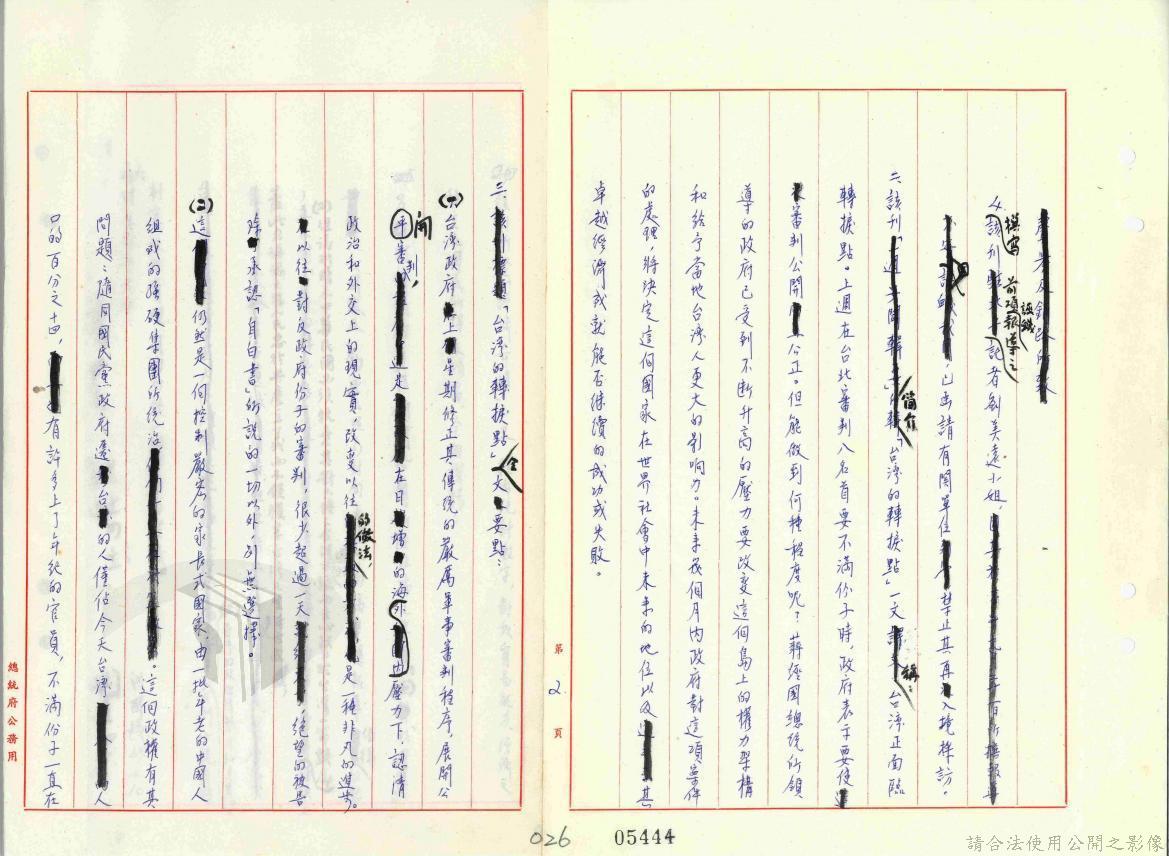 4.該刊
撰寫前項報導之
該錢
記者劉美遠小姐,
,已函請有關單位禁止其再入境採訪。
二、該刊「台灣的轉捩點」一文
簡介
稱:
台灣正面臨
轉捩點。上週在台北審判八名首要不滿份子時,政府表示要使
審判公開公正。但能做到何種程度呢?蔣經國總統所領
導的政府已受到不斷升高的壓力要改變這個島上的權力架構
和給予當地台灣人更大的影响力。未來幾個月內政府對這項案件
的處理,將決定這個國家在世界社會中未來的地位以及其
卓越經濟成就能否继續的成功或失敗。
第2頁
三、「台灣的轉捩點」全文要點:
(1)台灣政府上星期修正其傳統的嚴厲軍事審判程序,展開公
開
平審判,
這是在日增的海外國內壓力下,認清
政治和外交上的現實,改变以往
的做法,
是一種非凡的進步。
以往對反政府份子的審判,很少超過一天,絕望的被告
除承認「自白書」所說的一切以外,別無選擇。
(2)這仍然是一個控制嚴密的家長式國家由一批年老的中國人
組成的強硬集團所統治。這個政權有其
問題:隨同國民黨政府遷台的人僅佔今天台灣人
口的百分之十四,有許多上了年纪的官員,不滿份子一直在
總統府公務用
026
05444
請合法使用公開之影像